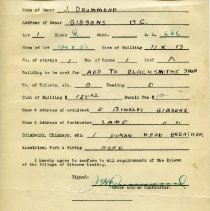 Name of Owner J. DRUMMOND
Address of Owner GIBSONS B.C.
Lot 1 Block 8 Subd. D.L. 686
Size of Lot Size of Building 11 X 13
No. of storeys 1 No. of Rooms 1 Roof
Building to be used for ADD TO BLACKSMITHS SHOP
No. of toilets, etc. 0 Heating 0
Cost of Building $ Permit $
Name & Address of Architect E. HINDLEY GIBSONS
Name & Address of Contractor SAME
Brickwork, Chimneys, etc. 1 YUKON HEAD BREATHER
Electrical Work & Wiring NONE
I hereby agree to conform to all requirements of the ByLaws
of the Village of Gibsons Landing.
Signed:
Owner and/or Contractor.